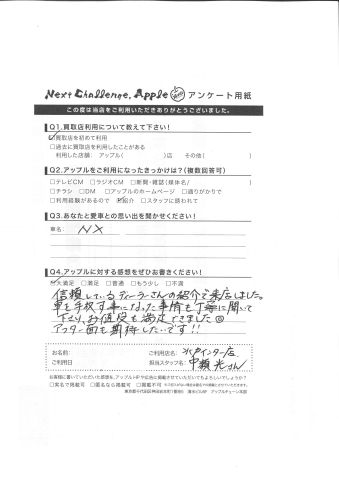 Next Challenge. Apple アンケート用紙
この度は当店をご利用いただきありがとうございました。
Q1.買取店利用について教えて下さい！
☑買取店を初めて利用
□過去に買取店を利用したことがある
利用した店舗： アップル( )店 その他( )
Q2.アップルをご利用になったきっかけは？(複数回答可)
□テレビCM □ラジオCM □新聞・雑誌(媒体名/ )
□チラシ □DM □アップルのホームページ □通りがかりで
□利用経験があるので ☑紹介 □スタッフに誘われて
Q3.あなたと愛車との思い出を聞かせください！
車名： NX
Q4.アップルに対する感想をぜひお書きください！
☑大満足 □満足 □普通 □もう少し □不満
信頼しているディーラーさんの紹介で来店しました。
車を手放す事になった事情を丁寧に聞いて
下さり、お値段も満足できました◎
アフター面も期待したいです!!
お名前： ご利用店名： 水戸インター店
ご利用日 担当スタッフ名： 中嶺 光さん
お客様に書いていただいた感想を、アップルHPや広告に掲載させていただいてもよろしいでしょうか？
□実名で掲載可 □匿名なら掲載可 □掲載不可